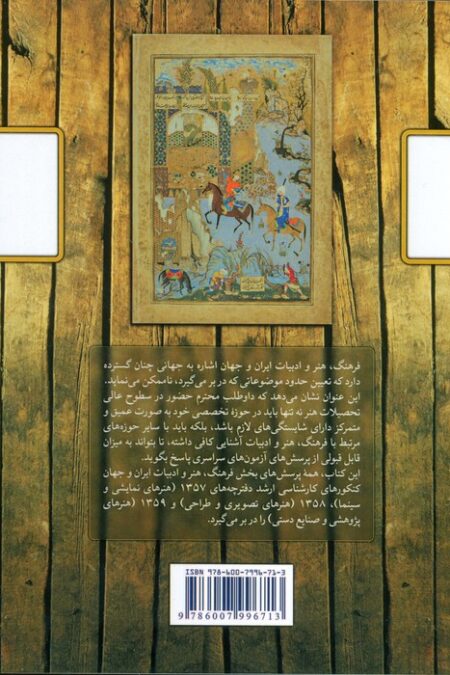 فرهنگ، هنر و ادبیات ایران و جهان اشاره به جهانی چنان گسترده
دارد که تعیین حدود موضوعاتی که در بر می‌گیرد، ناممکن می‌نماید.
این عنوان نشان می‌دهد که داوطلب محترم حضور در سطوح عالی
تحصیلات هنر نه تنها باید در حوزه تخصصی خود به صورت عمیق و
متمرکز دارای شایستگی‌های لازم باشد، بلکه باید با سایر حوزه‌های
مرتبط با فرهنگ، هنر و ادبیات آشنایی کافی داشته، تا بتواند به میزان
قابل قبولی از پرسش‌های آزمون‌های سراسری پاسخ بگوید.
این کتاب، همهٔ پرسش‌های بخش فرهنگ، هنر و ادبیات ایران و جهان
کنکورهای کارشناسی ارشد دفترچه‌های ۱۳۵۷ (هنرهای نمایشی و
سینما)، ۱۳۵۸ (هنرهای تصویری و طراحی) و ۱۳۵۹ (هنرهای
پژوهشی و صنایع دستی) را در بر می‌گیرد.
ISBN 978-600-7996-71-3
9 786007 996713